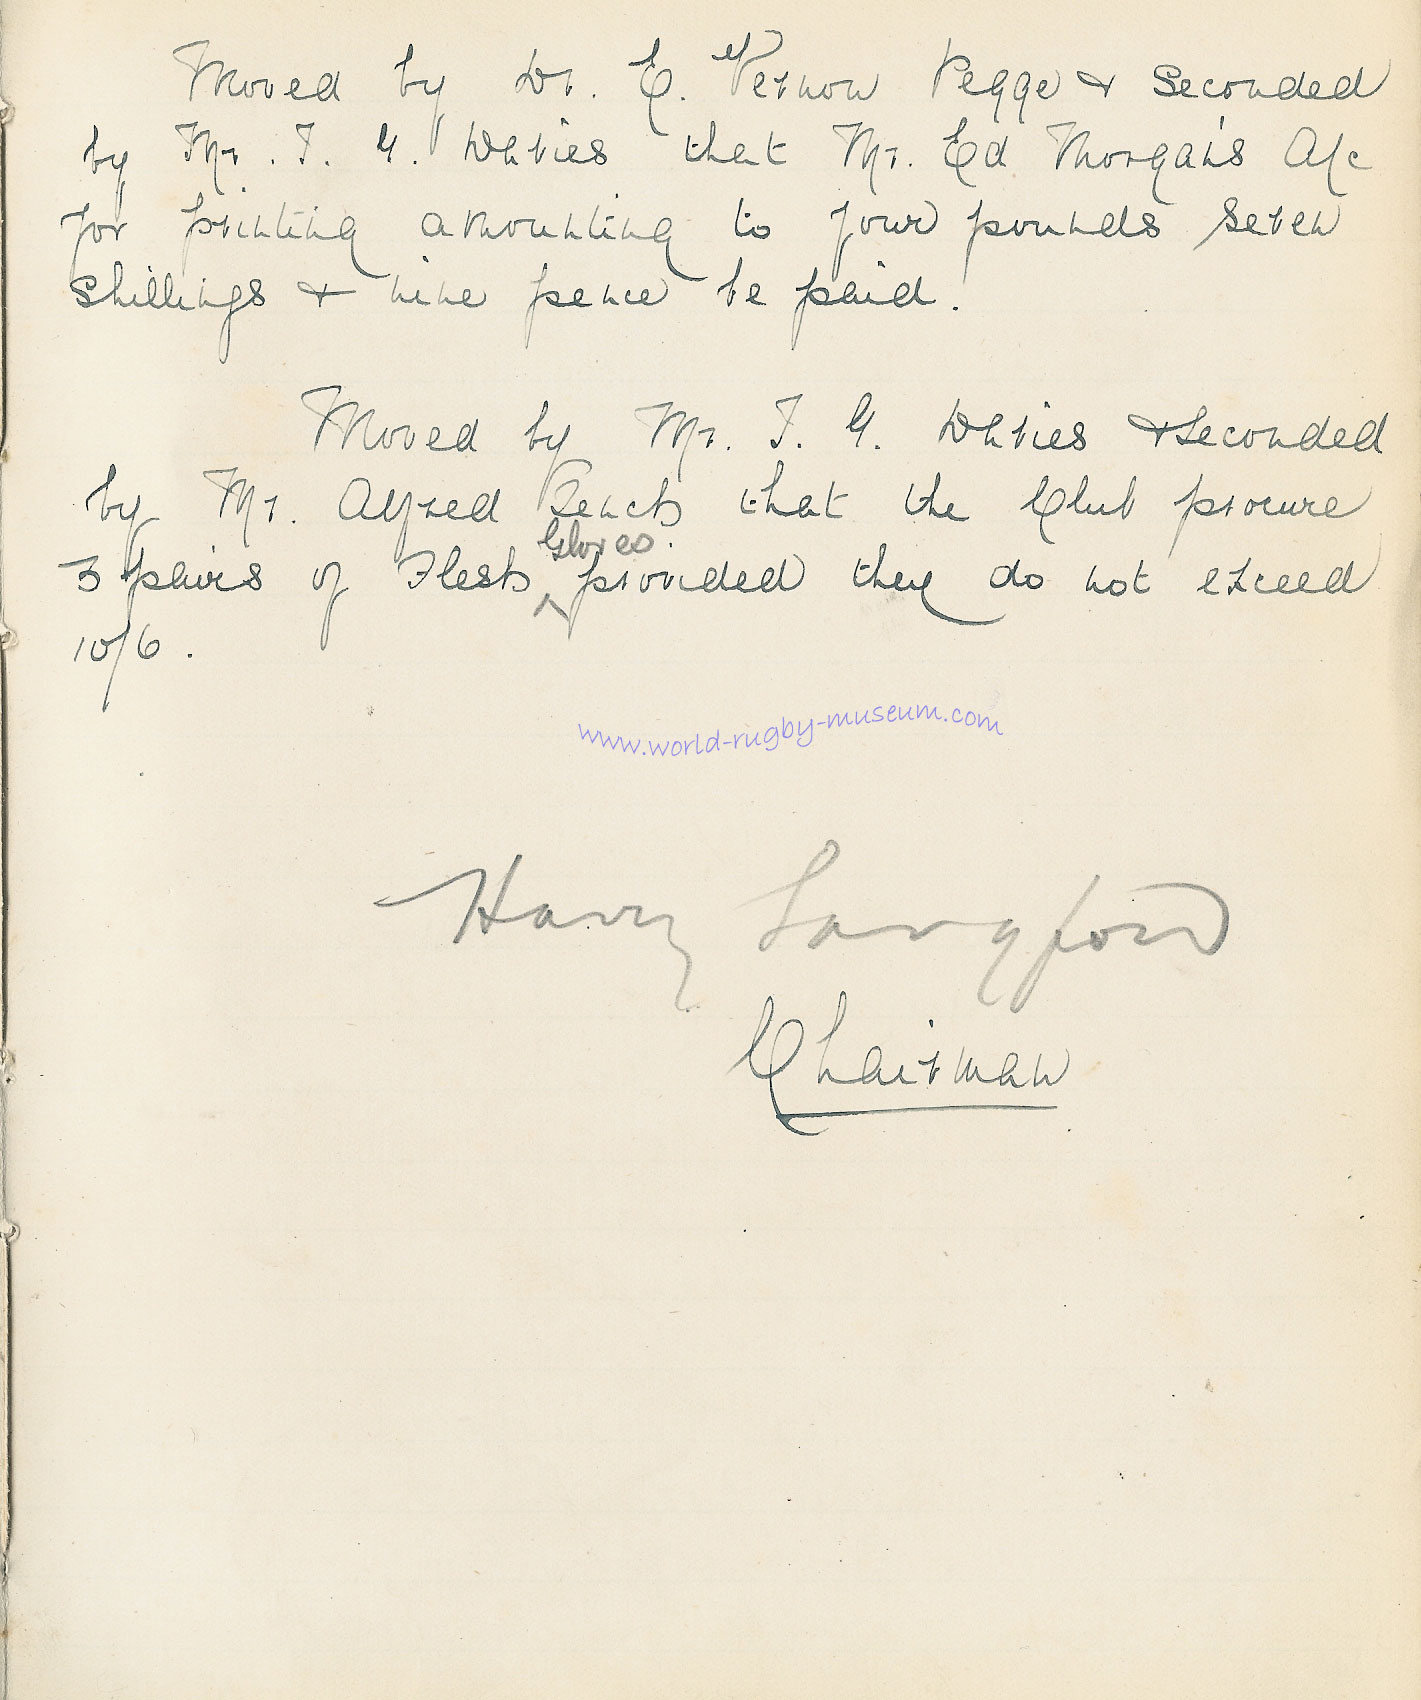 Moved by Dr. E. Vernon Pegge & Seconded
by Mr. T. G. Davies that Mr. Ed Morgan's A/c
for printing amounting to four pounds seven
shillings & nine pence be paid.
Moved by Mr. T. G. Davies & Seconded
by Mr. Alfred Tench that the Club procure
Gloves
3 pairs of Flesh ^ provided they do not exceed
10/6.
www.world-rugby-museum.com
Harry Langford
Chairman